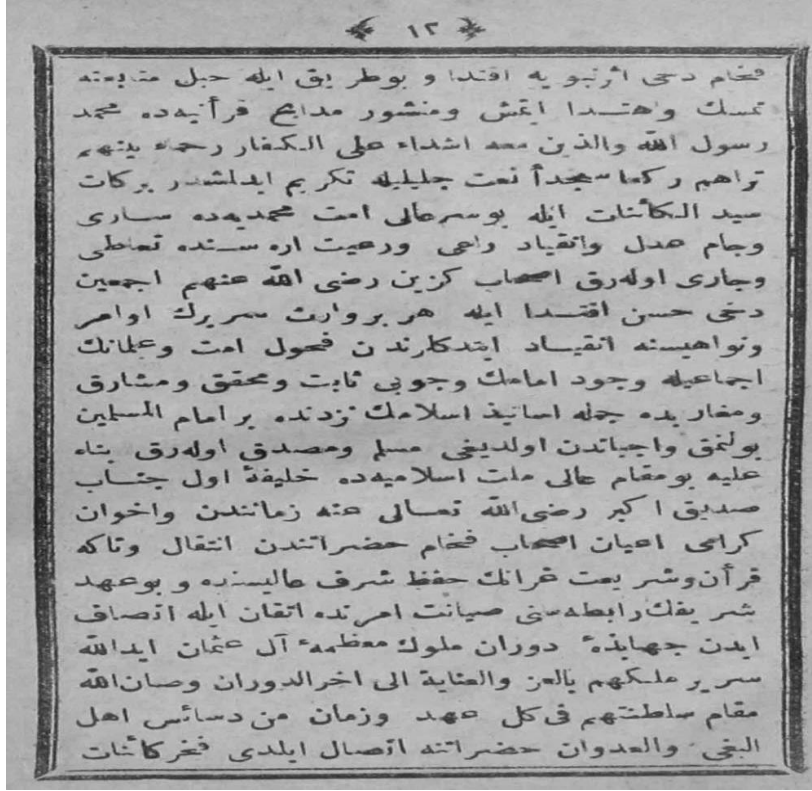 ١٢
فخام دخی اثر نبویه اقتدا و بوطریق ایله حبل متابعته
تمسك واهتدا ایتمش ومنشور مدایح قرآنیه‌ده محمد
رسول الله والذین معه اشداء علی الکفار رحماء بینهم
تراهم رکعا سجداً نعت جلیلیله تکریم ایدلمشدر برکات
سید الکائنات ایله بوسرعالی امت محمدیه‌ده ساری
وجام عدل وانقیاد راعی ورعیت اره‌سنده تعاطی
وجاری اوله‌رق اصحاب کزین رضی الله عنهم اجمعین
دخی حسن اقتدا ایله هر بروارث سریرك اوامر
ونواهیسنه انقیاد ایتدکارندن فحول امت وعلمانك
اجماعیله وجود امامك وجوبی ثابت ومحقق ومشارق
ومغاربده جمله اساتیذ اسلامك نزدنده بر امام المسلمین
بولنمق واجباتدن اولدیغی مسلم ومصدق اوله‌رق بناء
علیه بومقام عالی ملت اسلامیه‌ده خلیفهٔ اول جناب
صدیق اکبر رضی‌الله تعالی عنه زمانندن واخوان
کرامی اعیان اصحاب فخام حضراتندن انتقال وتاکه
قرآن وشریعت غرانك حفظ شرف عالیسنده و بوعهد
شریفك رابطه‌سنی صیانت امرنده اتقان ایله اتصاف
ایدن جهابذهٔ دوران ملوك معظمهٔ آل عثمان ایدالله
سریر ملکهم بالعز والعنایة الی اخرالدوران وصان‌الله
مقام سلطنتهم فی کل عهد وزمان من دسائس اهل
البغی والعدوان حضراتنه اتصال ایلدی فخر کائنات